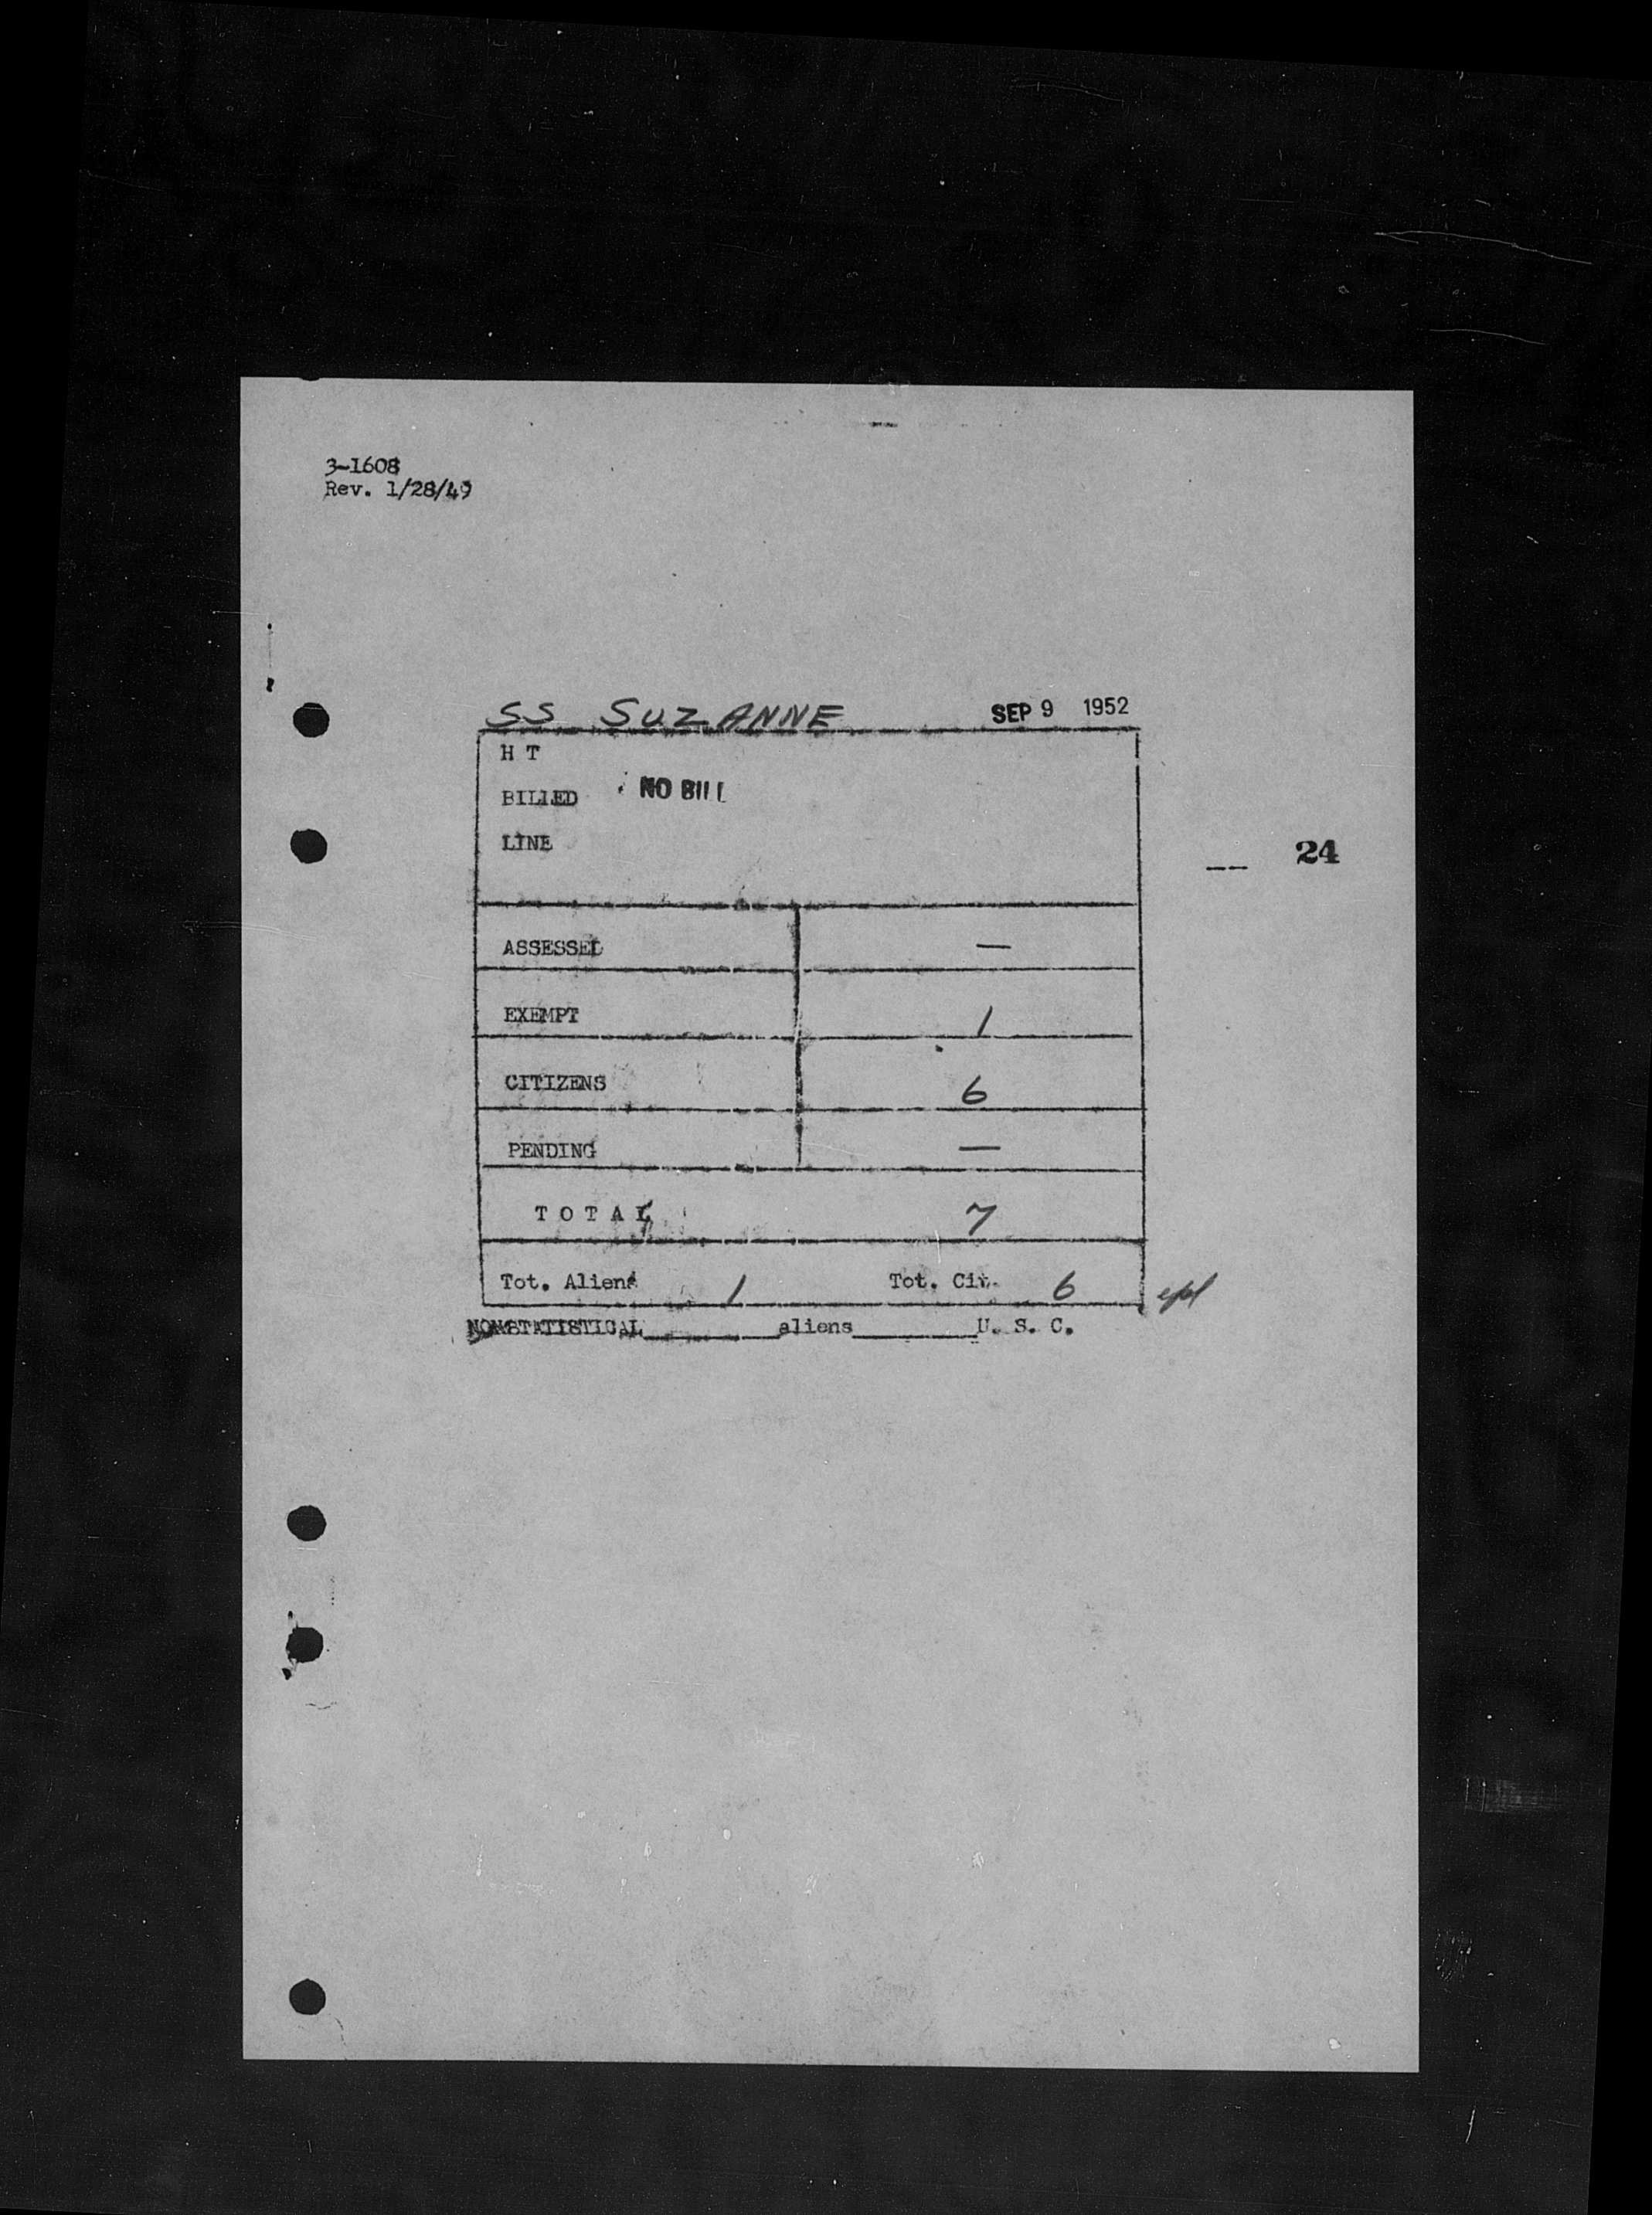 3-1608
Rev. 1/28/49
SS SUZANNE SEP 9 1952
H T
BILLED NO BILL
LINE
24
ASSESSED —
EXEMPT 1
CITIZENS 6
PENDING —
TOTAL 7
Tot. Aliens 1 Tot. Cit. 6
NONSTATISTICAL aliens U. S. C.